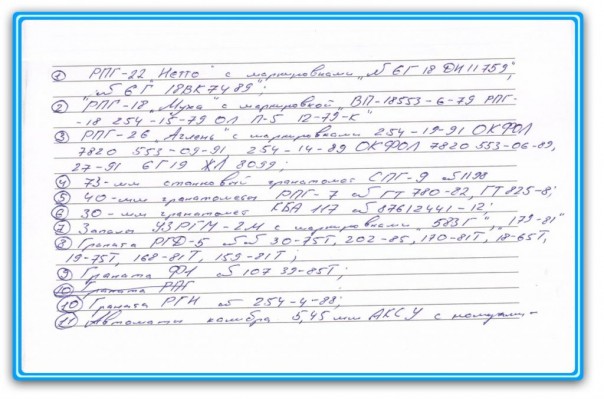 ① РПГ-22 „Нетто" с маркировками „№ 6Г 18 ДИ 11759",
„№ 6Г 18ВК 7489";
② "РПГ-18 „Муха" с маркировкой „ВП-18553-6-79 РПГ-
-18 254-15-79 ОЛ П-5 12-79-К"
③ РПГ-26 „Аглень" с маркировками 254-19-91 ОКФОЛ
7820 553-09-91, 254-14-89 ОКФОЛ 7820 553-06-89,
27-91 6Г19 ЖЛ 8099;
④ 73-мм станковый гранатомет СПГ-9 №1198
⑤ 40-мм гранатометы РПГ-7 № ГТ 780-82, ГТ 825-8;
⑥ 30-мм гранатомет КБА 117 №87612441-12;
⑦ Запалы УЗРГМ-2М с маркировками „583Г", „179-81"
⑧ Граната РГД-5 №№ 30-75Т, 202-85, 170-81Т, 18-65Т,
19-75Т, 168-81Т, 159-81Т;
⑨ Граната Ф1 № 107 39-85Т;
⑩ Граната РАГ
⑩ Граната РГН № 254-4-88;
⑪ Автоматы калибра 5,45 мм АКСУ с